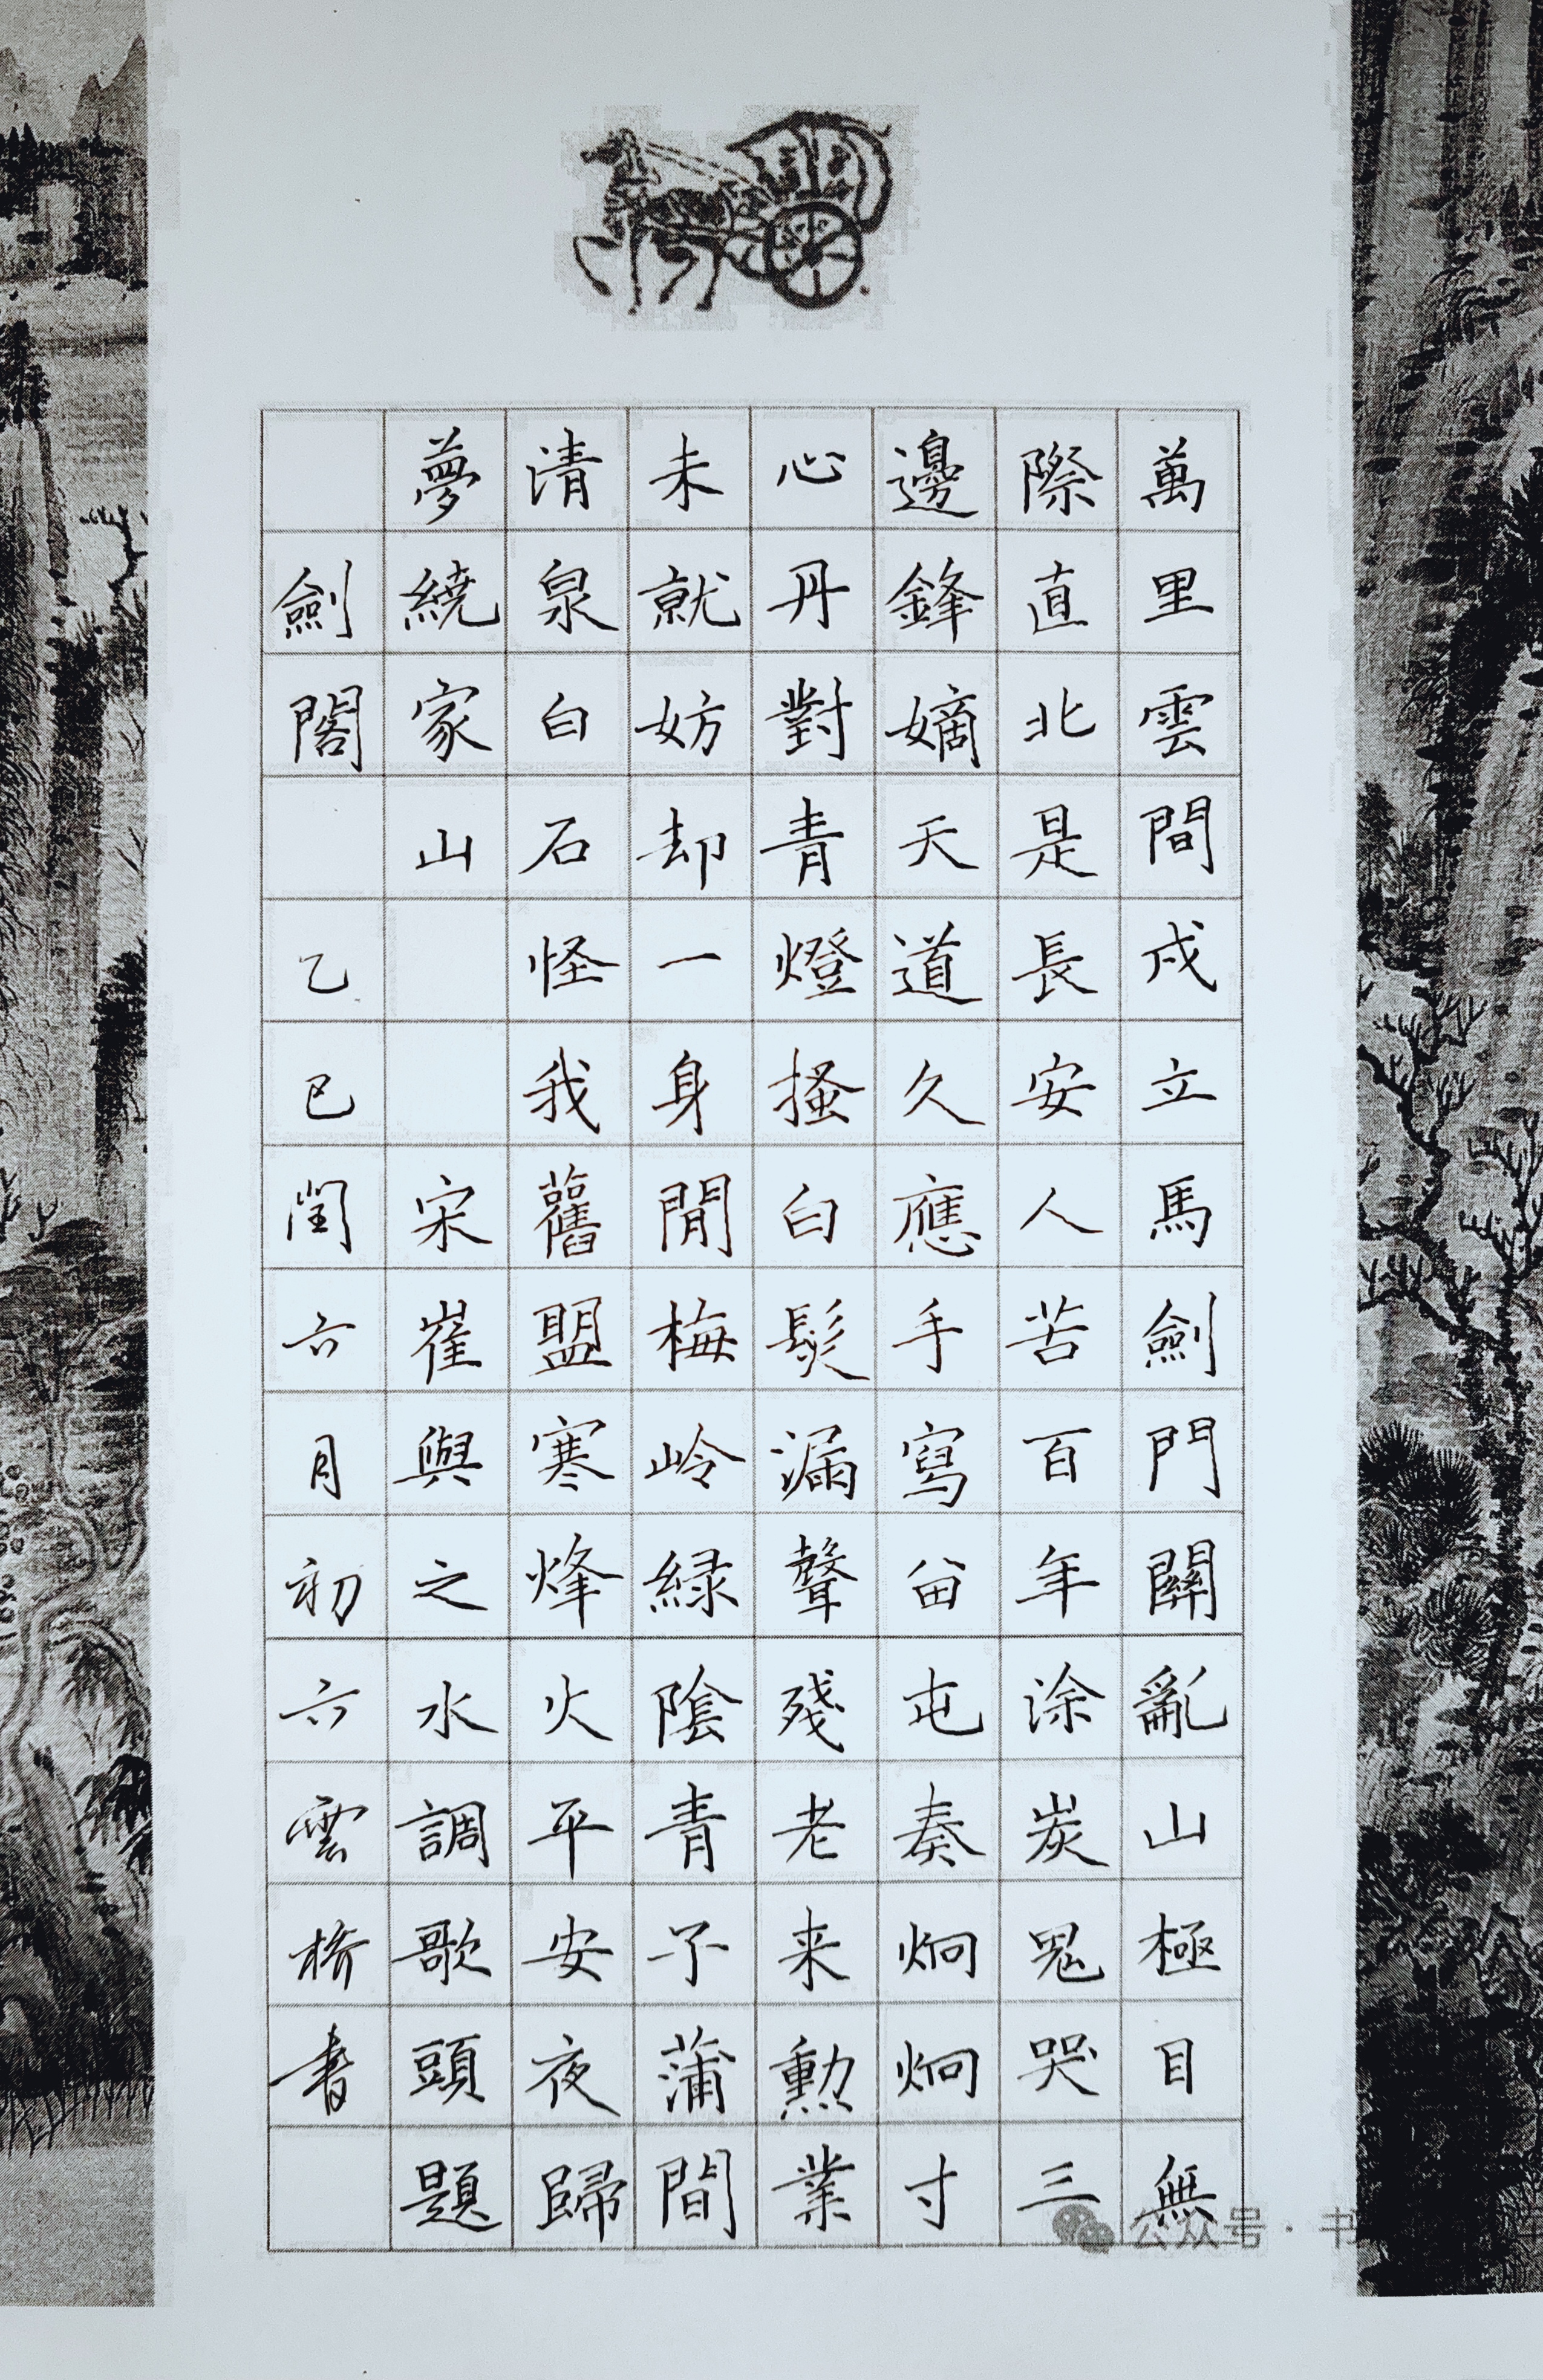 萬里雲間戍立馬劍門關亂山極目無
際直北是長安人苦百年涂炭鬼哭三
邊鋒嫡天道久應手寫畄屯奏炯炯寸
心丹對青燈搔白髮漏聲殘老来勳業
未就妨却一身閒梅岭緑陰青子蒲間
清泉白石怪我舊盟寒烽火平安夜歸
夢繞家山宋崔與之水調歌頭題
劍閣乙巳閏六月初六雲橋書
公众号·书